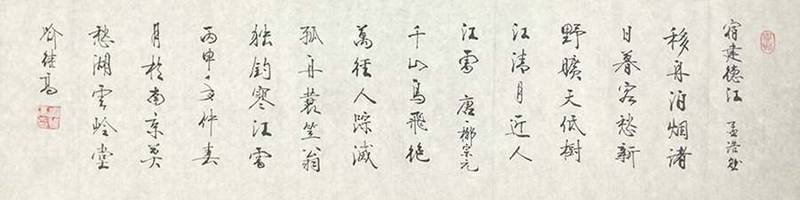 宿建德江 孟浩然
移舟泊烟渚
日暮客愁新
野曠天低樹
江清月近人
江雪 唐 柳宗元
千山鸟飛絶
萬徑人踪滅
孤舟蓑笠翁
独釣寒江雪
丙申仲春
月於南京莫
愁湖雲岭堂
喻继高